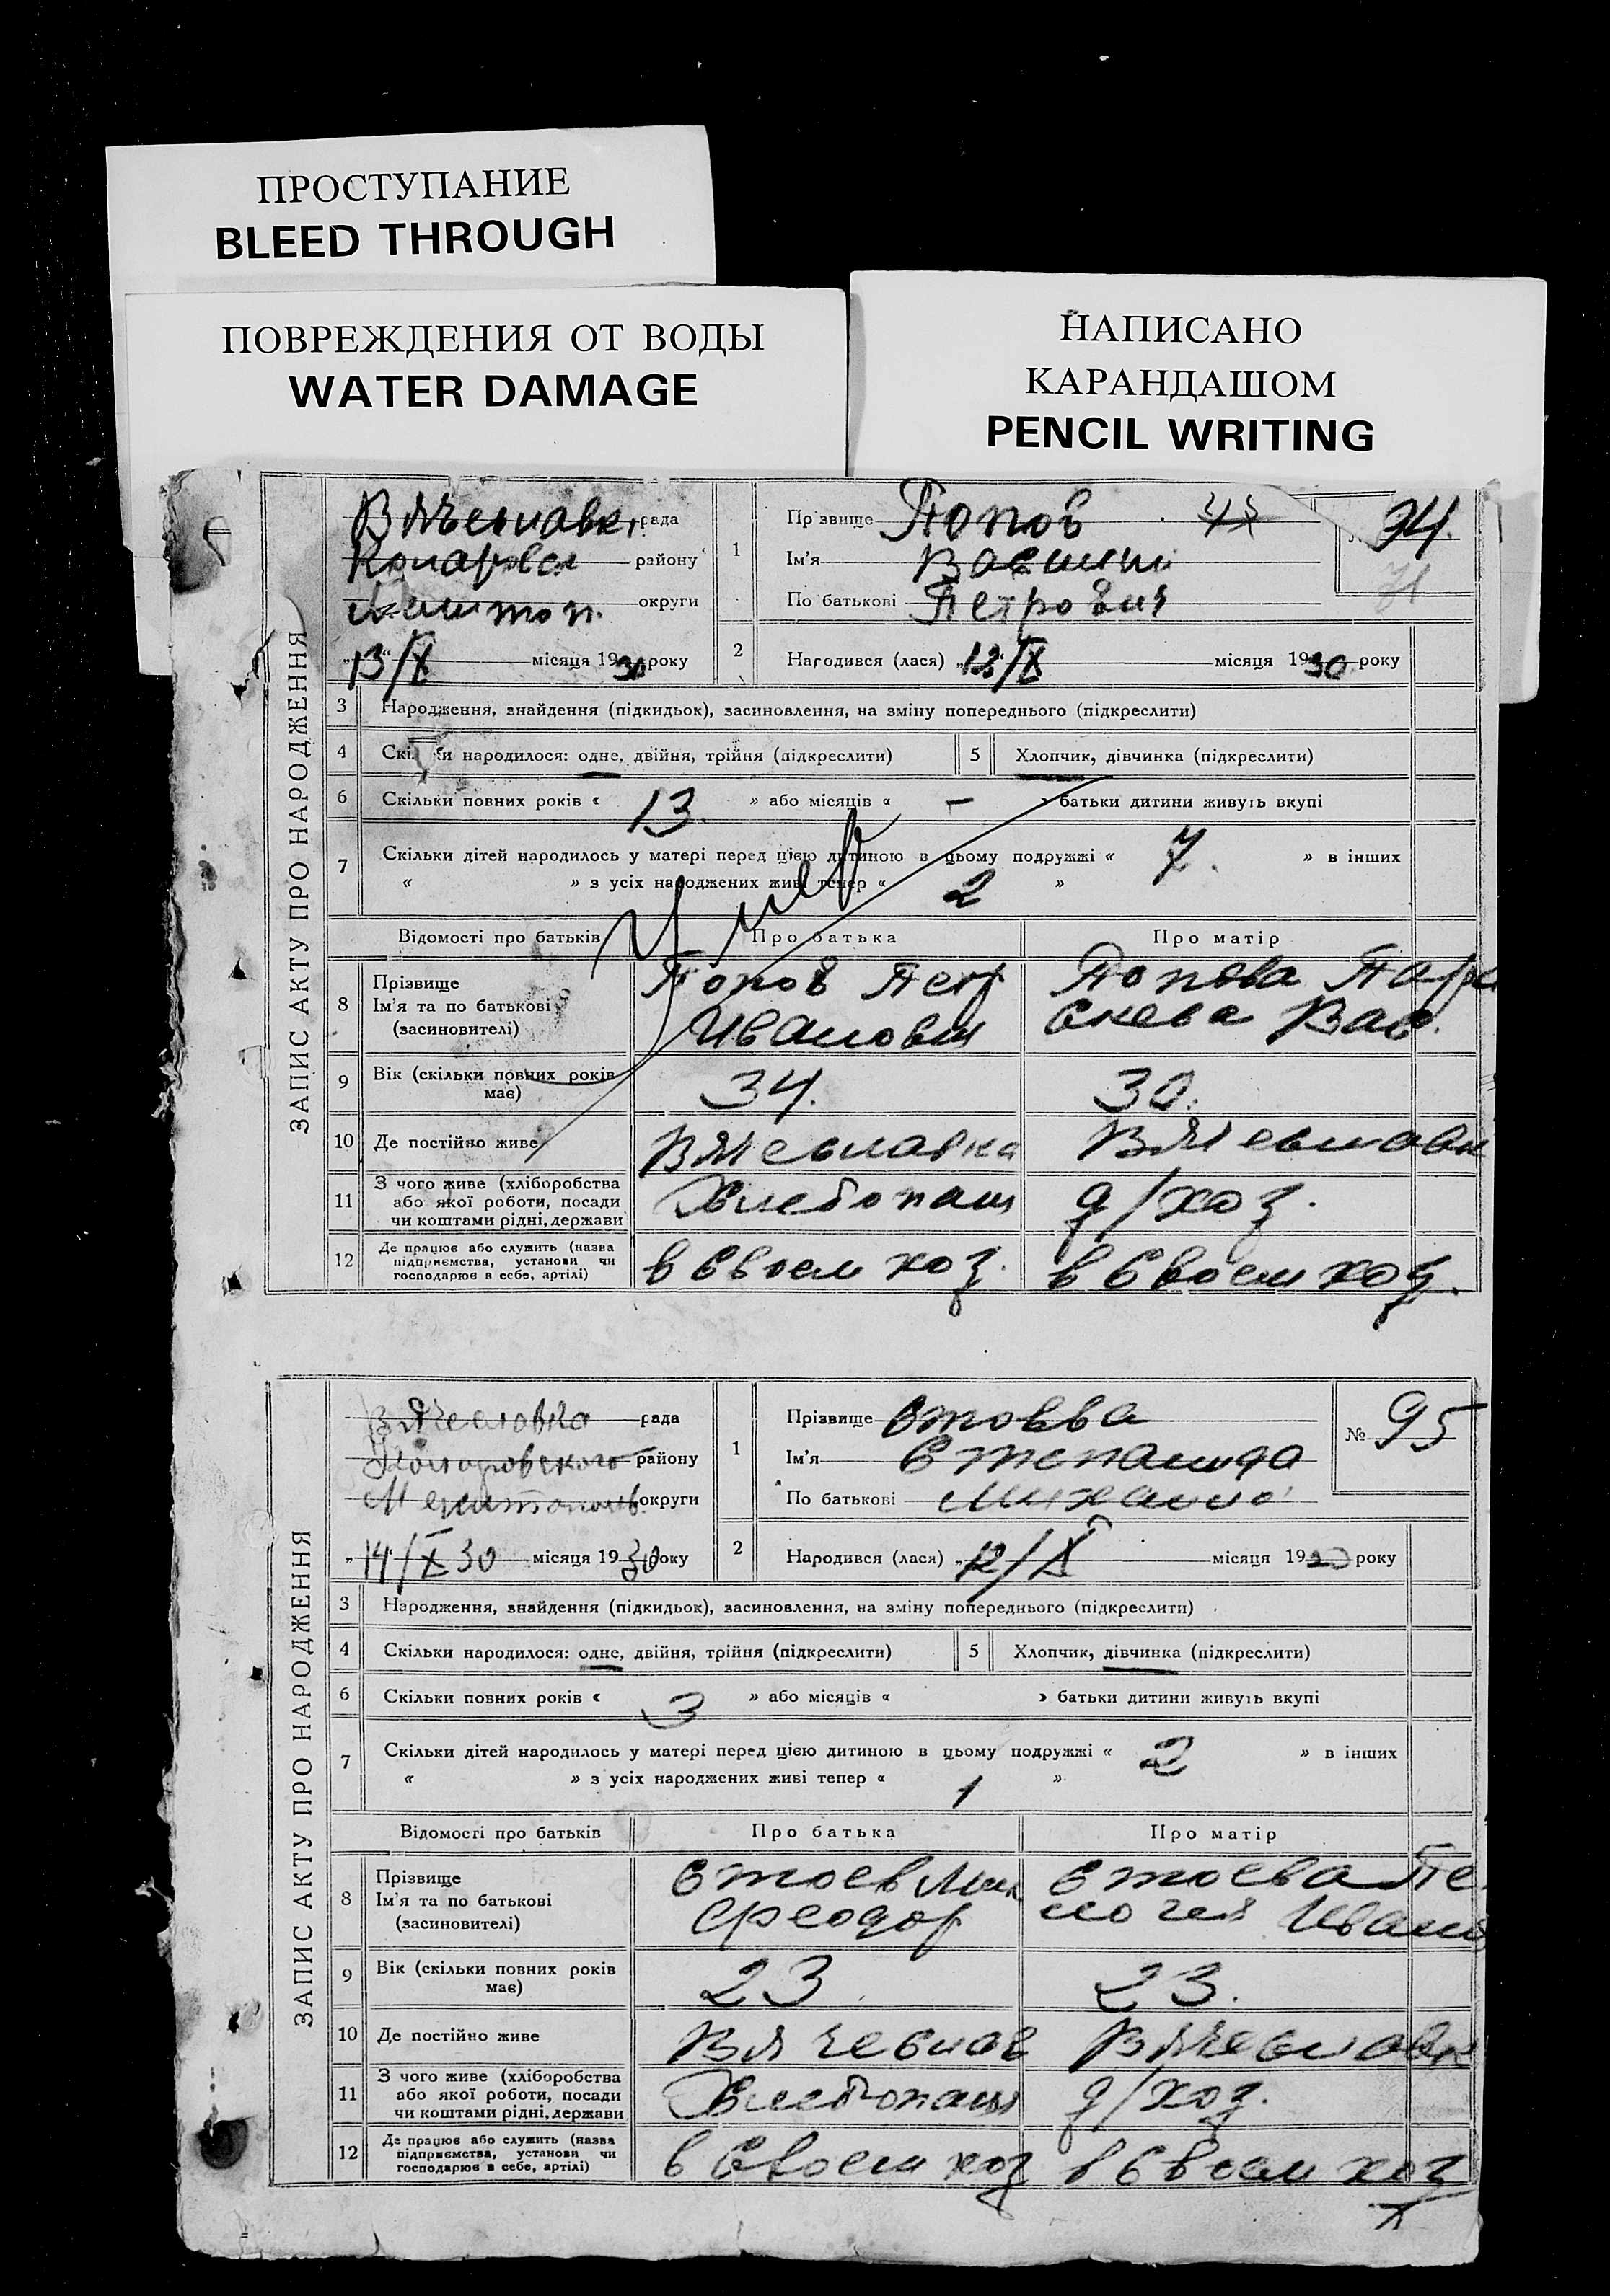 ПРОСТУПАНИЕ
BLEED THROUGH
ПОВРЕЖДЕНИЯ ОТ ВОДЫ
WATER DAMAGE
НАПИСАНО
КАРАНДАШОМ
PENCIL WRITING
ЗАПИС АКТУ ПРО НАРОДЖЕННЯ
рада
району
округи
13/X місяця 1930 року
1 Прізвище Попов
Ім'я Василий
По батькові Петрович
94
2 Народився (лася) 12/X місяця 1930 року
3 Народження, знайдення (підкидьок), засиновлення, на зміну попереднього (підкреслити)
4 Скільки народилося: одне, двійня, трійня (підкреслити) 5 Хлопчик, дівчинка (підкреслити)
6 Скільки повних років « 13. » або місяців « — » батьки дитини живуть вкупі
7 Скільки дітей народилось у матері перед цією дитиною в цьому подружжі « 7. » в інших
« » з усіх народжених живі тепер « 2 »
Умер
Відомості про батьків Про батька Про матір
8 Прізвище
Ім'я та по батькові
(засиновителі)
Попов Петр
Иванович
Попова Пара
скева Вас.
9 Вік (скільки повних років
має)
34. 30.
10 Де постійно живе Вячеславка Вячеславк
11 З чого живе (хліборобства
або якої роботи, посади
чи коштами рідні, держави
Хлебопаш д/хоз.
12 Де працює або служить (назва
підприємства, установи чи
господарює в себе, артілі)
в своем хоз. в своем хоз.
ЗАПИС АКТУ ПРО НАРОДЖЕННЯ
Вячеславка рада
району
округи
14/X 30 місяця 1930 року
1 Прізвище Стоева
Ім'я Степанида
По батькові Михайло
№ 95
2 Народився (лася) 12/X місяця 1930 року
3 Народження, знайдення (підкидьок), засиновлення, на зміну попереднього (підкреслити)
4 Скільки народилося: одне, двійня, трійня (підкреслити) 5 Хлопчик, дівчинка (підкреслити)
6 Скільки повних років « 3 » або місяців « » батьки дитини живуть вкупі
7 Скільки дітей народилось у матері перед цією дитиною в цьому подружжі « 2 » в інших
« » з усіх народжених живі тепер « 1 »
Відомості про батьків Про батька Про матір
8 Прізвище
Ім'я та по батькові
(засиновителі)
Стоев Мих
Феодор
Стоева Пе
логея Иван
9 Вік (скільки повних років
має)
23 23.
10 Де постійно живе Вячеслав Вячеславк
11 З чого живе (хліборобства
або якої роботи, посади
чи коштами рідні, держави
Хлебопаш д/хоз.
12 Де працює або служить (назва
підприємства, установи чи
господарює в себе, артілі)
в своем хоз в своем хоз